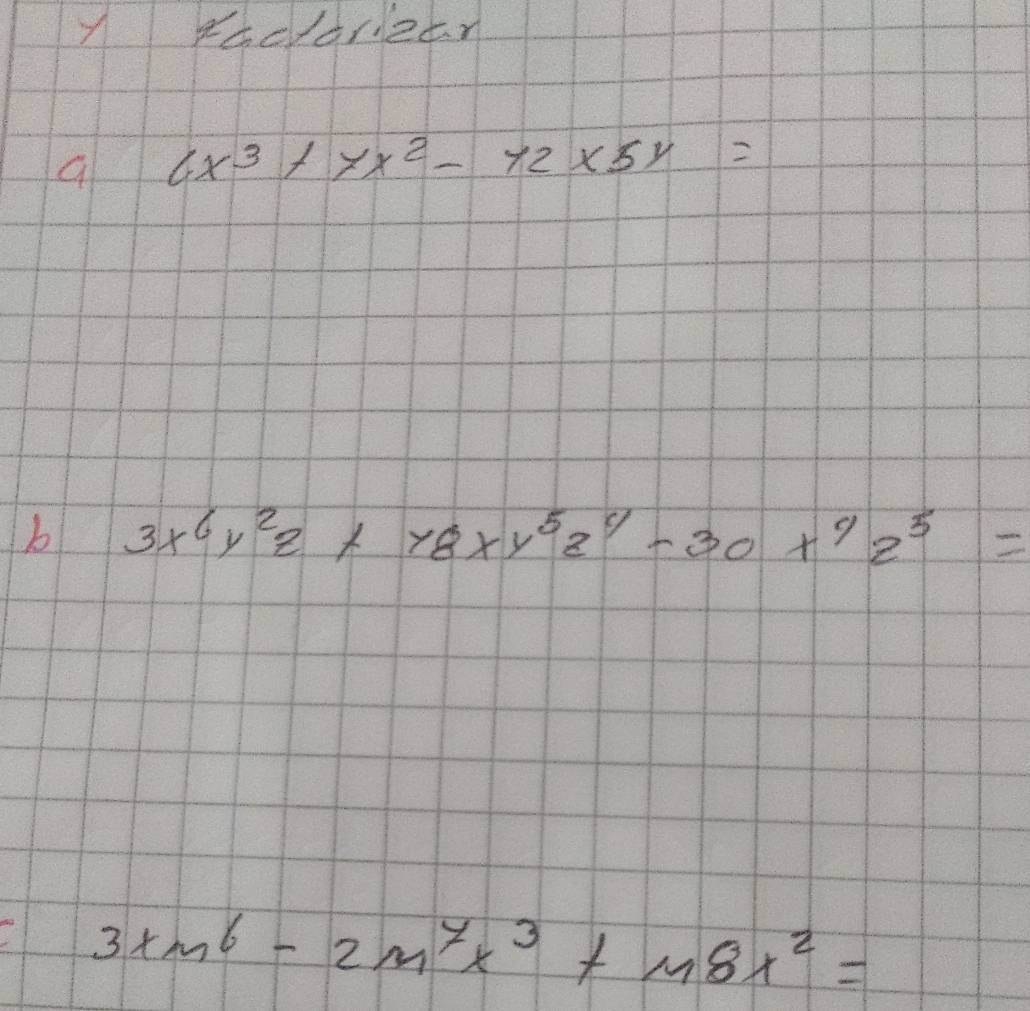 1 Factorizar
a 6x³ + 7x² - 12x5y =
b 3x⁶y²z + 18xy⁵z⁴ - 30x⁴z⁵ =
3xm⁶ - 2m⁷x³ + m8x² =